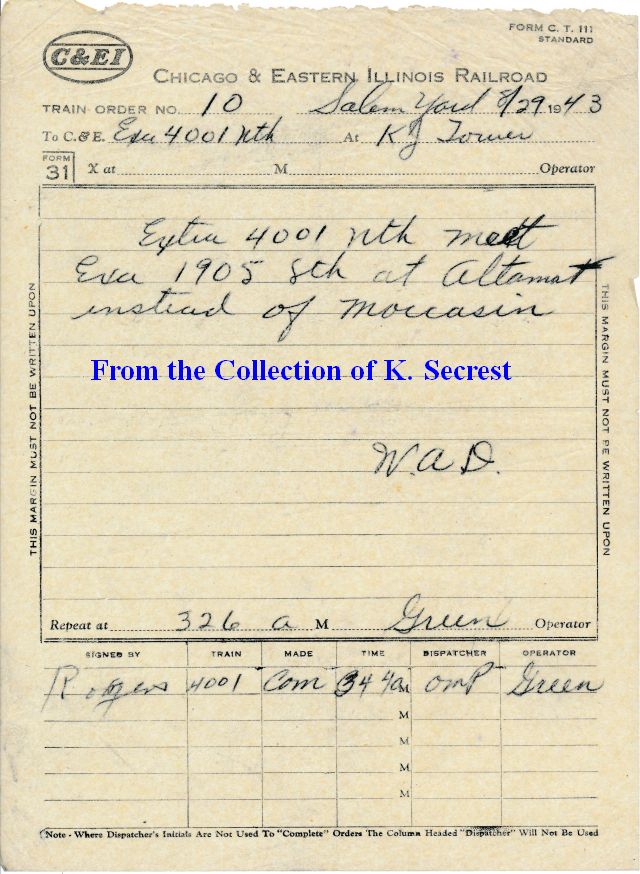 FORM C. T. 111
STANDARD
C&EI
CHICAGO & EASTERN ILLINOIS RAILROAD
TRAIN ORDER NO. 10 Salem Yard 8/29 1943
To C. & E. Exa 4001 Nth At KJ Tower
FORM 31 X at M Operator
Extra 4001 Nth meet
Exa 1905 Sth at Altamont
instead of Moccasin
From the Collection of K. Secrest
W.A.D.
THIS MARGIN MUST NOT BE WRITTEN UPON
THIS MARGIN MUST NOT BE WRITTEN UPON
Repeat at 326 a M Green Operator
SIGNED BY TRAIN MADE TIME DISPATCHER OPERATOR
Rogers 4001 Com 344a M OMP Green
M
M
M
M
Note - Where Dispatcher's Initials Are Not Used To "Complete" Orders The Column Headed "Dispatcher" Will Not Be Used